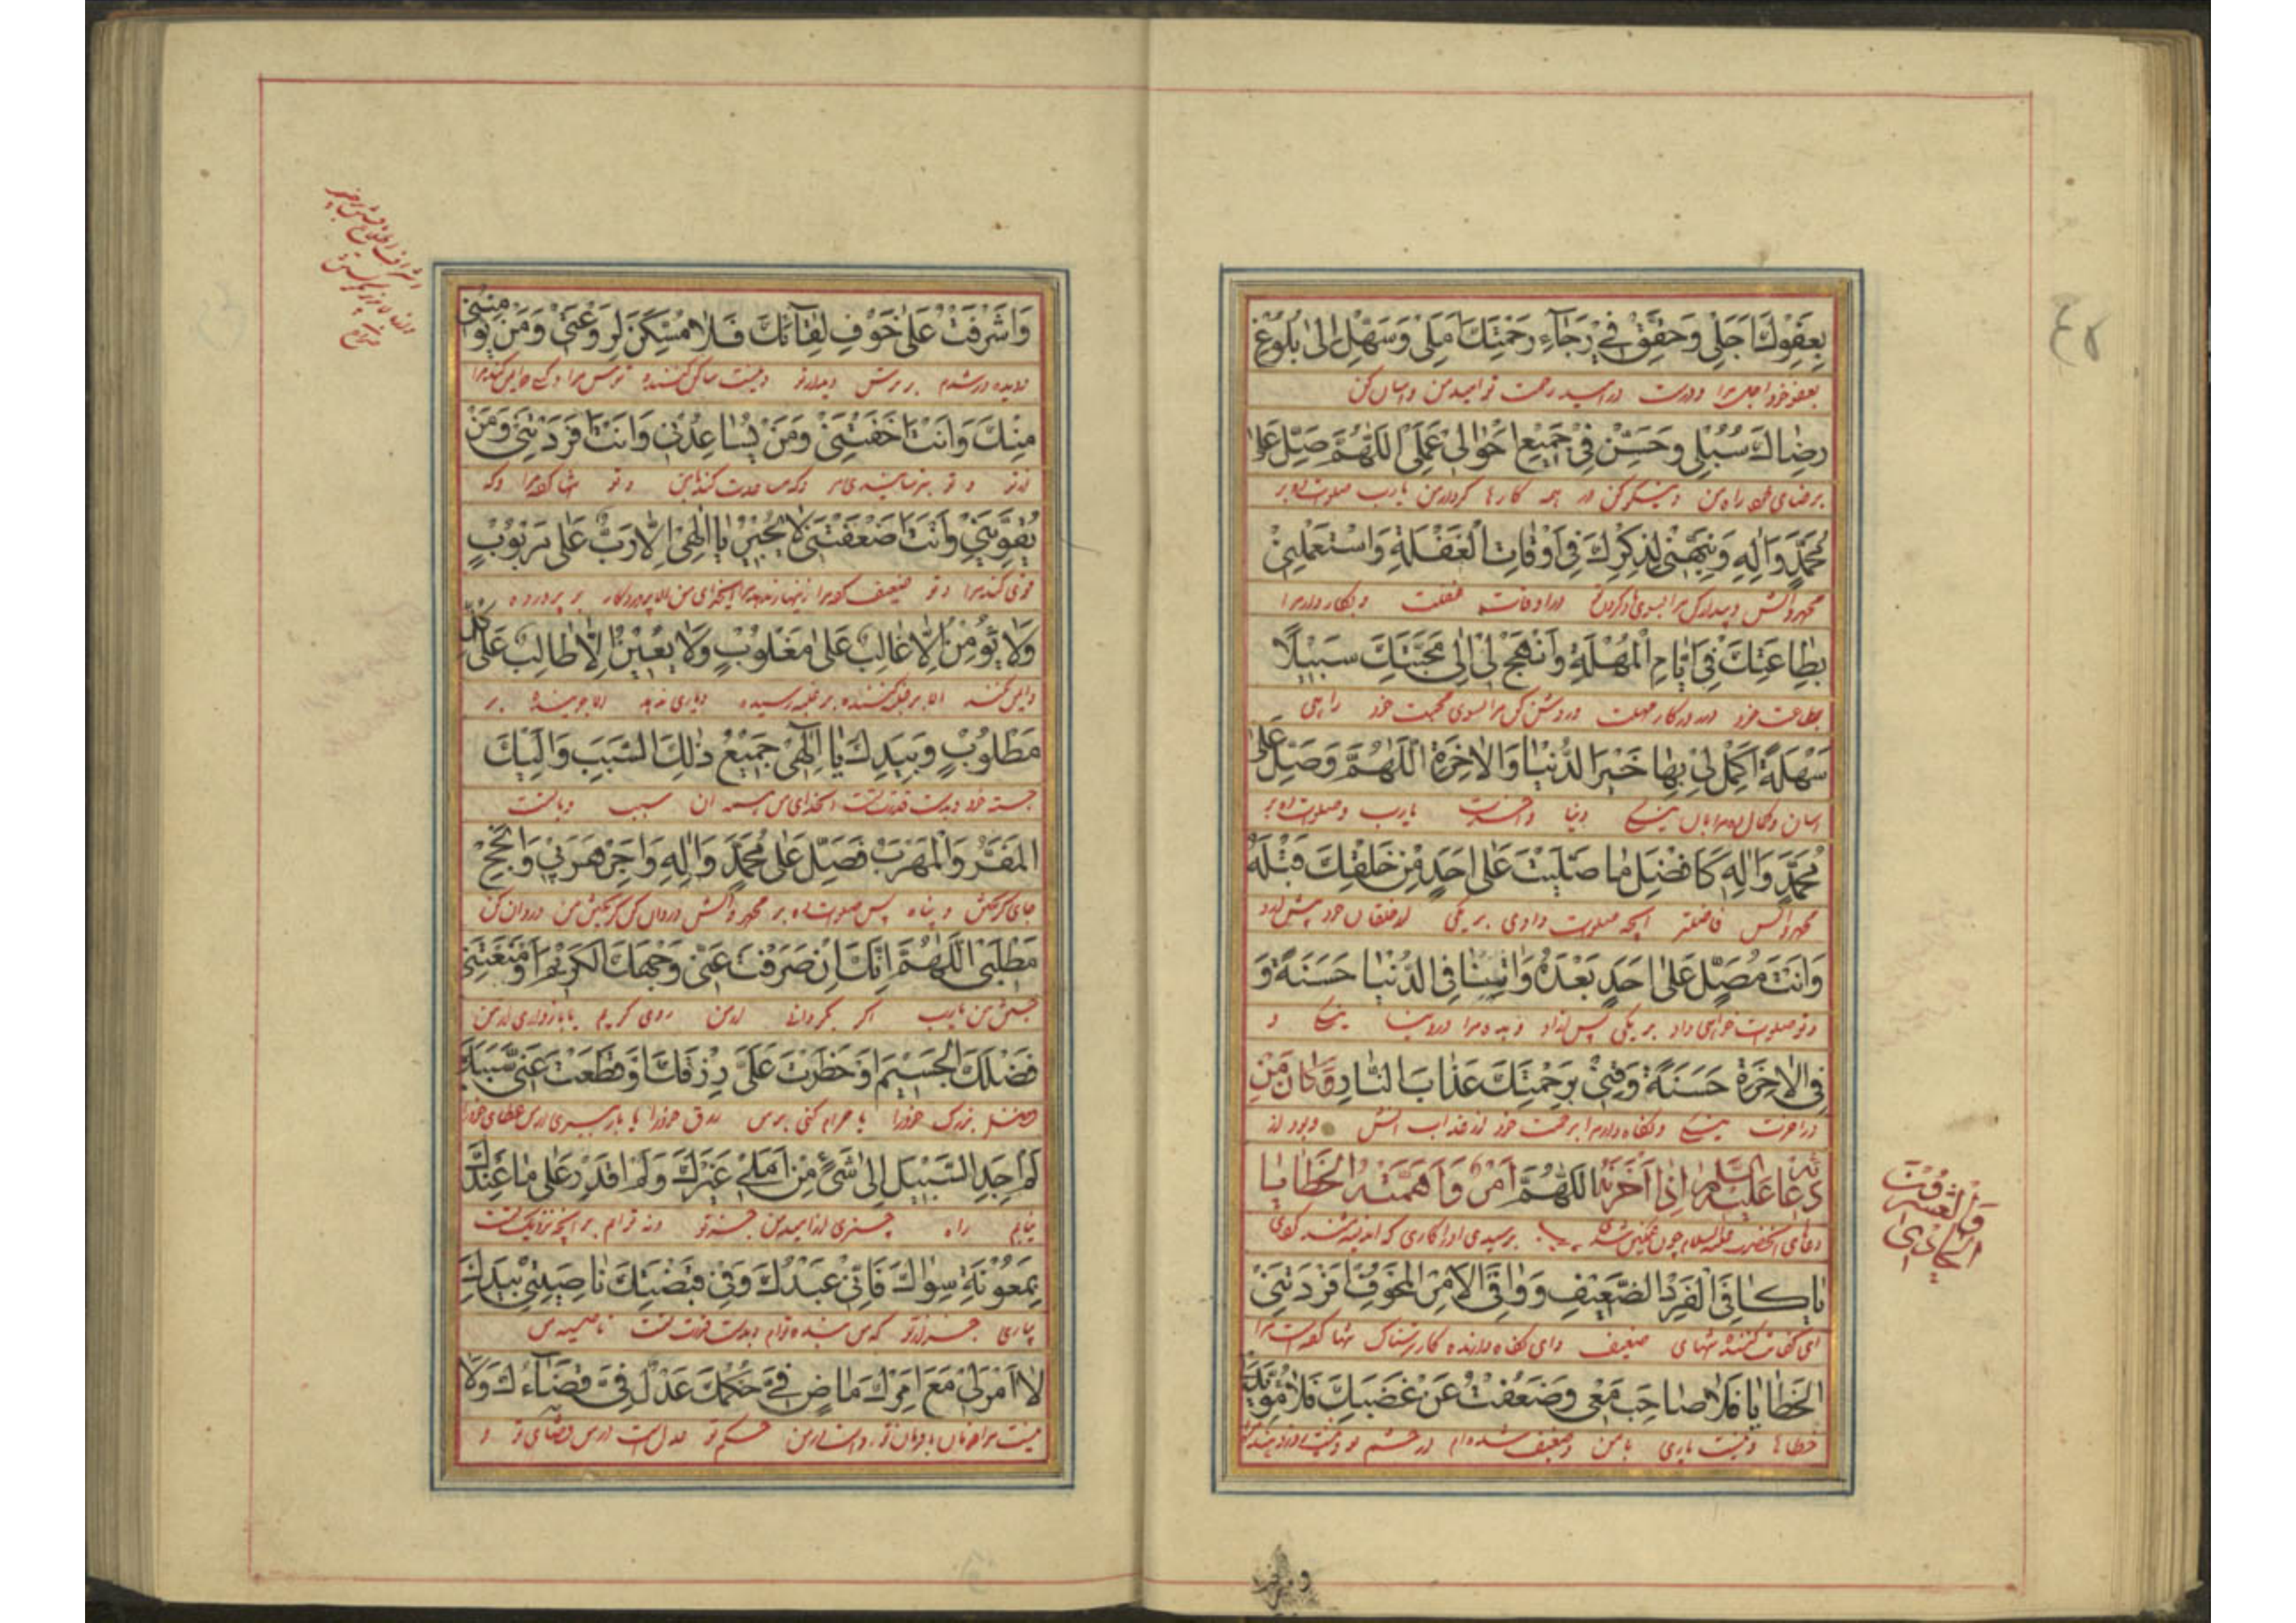 بِعَفْوِكَ اَجَلِي وَحَقِّقْ فِي رَجَآءِ رَحْمَتِكَ اَمَلِي وَسَهِّلْ اِلىٰ بُلُوغِ
بعفو خود اجل مرا ودرست در امید رحمت تو امید من واسان کن
رِضٰاكَ سُبُلِي وَحَسِّنْ فِي جَمِيعِ اَحْوٰالِي عَمَلِي اَللّٰهُمَّ صَلِّ عَلىٰ
برضای راه من ونیکو کن در همه کارها کردار من یارب صلوت ده بر
مُحَمَّدٍ وَاٰلِهِ وَنَبِّهْنِي لِذِكْرِكَ فِي اَوْقٰاتِ الْغَفْلَةِ وَاسْتَعْمِلْنِي
محمد وآلش وبیدار کن مرا بسوی در اوقات غفلت وبکار دار مرا
بِطٰاعَتِكَ فِي اَيّٰامِ الْمُهْلَةِ وَانْهَجْ لِي اِلىٰ مَحَبَّتِكَ سَبِيلًا
بطاعت خود در روزکار مهلت وروشن کن مرا بسوی محبت خود راهی
سَهْلَةً اَكْمِلْ لِي بِهٰا خَيْرَ الدُّنْيٰا وَالْاٰخِرَةِ اَللّٰهُمَّ وَصَلِّ عَلىٰ
اسان دنیا واخرت یارب وصلوت ده بر
مُحَمَّدٍ وَاٰلِهِ كَاَفْضَلِ مٰا صَلَّيْتَ عَلىٰ اَحَدٍ مِنْ خَلْقِكَ قَبْلَهُ
محمد وآلش فاضلتر آنچه صلوت دادی بر یکی از خلقان خود پیش از او
وَاَنْتَ مُصَلٍّ عَلىٰ اَحَدٍ بَعْدَهُ وَاٰتِنٰا فِي الدُّنْيٰا حَسَنَةً وَ
وتو صلوت خواهی داد بر یکی پس از او وبده مرا در دنیا نیکی و
فِي الْاٰخِرَةِ حَسَنَةً وَقِنِي بِرَحْمَتِكَ عَذٰابَ النّٰارِ وَكٰانَ مِنْ
در اخرت نیکی ونکاه دار مرا برحمت خود از عذاب آتش وبود از
دُعٰائِهِ عَلَيْهِ السَّلٰمُ اِذٰا اَحْزَنَهُ اَمْرٌ وَاَهَمَّتْهُ الْخَطٰايٰا اَللّٰهُمَّ
دعای آنحضرت علیه السلام چون غمکین شدی
يٰا كٰافِيَ الْفَرْدِ الضَّعِيفِ وَوٰاقِيَ الْاَمْرِ الْمَخُوفِ اَفْرَدَتْنِي
ای کفایت کننده تنهای ضعیف وای نکاه دارنده کار ترسناک تنها
الْخَطٰايٰا فَلٰا صٰاحِبَ مَعِي وَضَعُفْتُ عَنْ غَضَبِكَ فَلٰا مُؤَيِّدَ لِي
خطاها ونیست یاری با من وضعیف شده ام از خشم تو
وَاَشْرَفْتُ عَلىٰ خَوْفِ لِقٰآئِكَ فَلٰا مُسَكِّنَ لِرَوْعَتِي وَمَنْ يُؤْمِنُنِي
بر ترس دیدار تو ونیست ساکن کننده ترس مرا وکه ایمن کند مرا
مِنْكَ وَاَنْتَ اَخَفْتَنِي وَمَنْ يُسٰاعِدُنِي وَاَنْتَ اَفْرَدْتَنِي وَمَنْ
از تو وتو وکه مساعدت کند وتو تنها وکه
يُقَوِّينِي وَاَنْتَ اَضْعَفْتَنِي لٰا يُجِيرُ يٰا اِلٰهِي اِلّٰا رَبٌّ عَلىٰ مَرْبُوبٍ
قوی کند مرا وتو ضعیف زینهار ندهد ای خدای من الا پروردکار بر پرورده
وَلٰا يُؤْمِنُ اِلّٰا غٰالِبٌ عَلىٰ مَغْلُوبٍ وَلٰا يُعِينُ اِلّٰا طٰالِبٌ عَلىٰ كُلِّ
وایمن نکند الا غلبه کننده بر غلبه رسیده ویاری ندهد الا جوینده بر
مَطْلُوبٍ وَبِيَدِكَ يٰا اِلٰهِي جَمِيعُ ذٰلِكَ السَّبَبِ وَاِلَيْكَ
جسته خود وبدست قدرت تست ای خدای من همه آن سبب وبا تست
الْمَفَرُّ وَالْمَهْرَبُ فَصَلِّ عَلىٰ مُحَمَّدٍ وَاٰلِهِ وَاَجِرْ هَرَبِي وَاَنْجِحْ
جای کریختن وپناه پس صلوت ده بر محمد وآلش وروان کن
مَطْلَبِي اَللّٰهُمَّ اِنَّكَ اِنْ صَرَفْتَ عَنِّي وَجْهَكَ الْكَرِيمَ اَوْ مَنَعْتَنِي
جستن من یارب اکر بکردانی از من روی کریم یا بازداری از من
فَضْلَكَ الْجَسِيمَ اَوْ حَظَرْتَ عَلَيَّ رِزْقَكَ اَوْ قَطَعْتَ عَنِّي سَبَبَكَ
فضل بزرک خود را یا حرام کنی بر من رزق خود را یا
لَمْ اَجِدِ السَّبِيلَ اِلىٰ شَيْءٍ مِنْ اَمَلِي غَيْرَكَ وَلَمْ اَقْدِرْ عَلىٰ مٰا عِنْدَكَ
نیابم راه چیزی از امید من جز تو ونه توانم بر آنچه نزدیک تست
بِمَعُونَةِ سِوٰاكَ فَاِنِّي عَبْدُكَ وَفِي قَبْضَتِكَ نٰاصِيَتِي بِيَدِكَ
بیاری جز از تو که من بنده توام وبدست قدرت تست ناصیه من
لٰا اَمْرَ لِي مَعَ اَمْرِكَ مٰاضٍ فِيَّ حُكْمُكَ عَدْلٌ فِيَّ قَضٰآءُكَ وَلٰا
نیست مرا فرمان با فرمان تو حکم تو عدل است در من قضای تو و